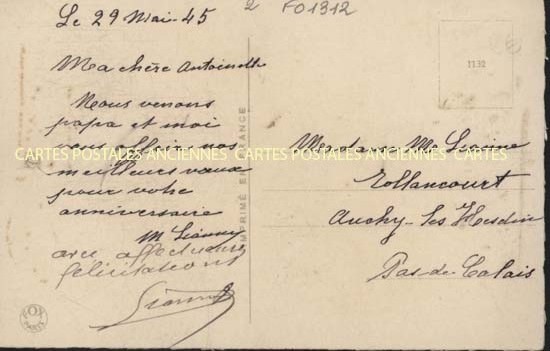 Le 29 Mai - 45
2 F01312
Ma chère Antoinette
Nous venons
papa et moi
vous offrir nos
meilleurs vœux
pour votre
anniversaire
M
avec affectueuses
félicitations
IMPRIMÉ EN FRANCE
1132
Madame M
Rollancourt
Auchy-les-Hesdin
Pas-de-Calais
CARTES POSTALES ANCIENNES CARTES POSTALES ANCIENNES CARTES
FOX
PARIS